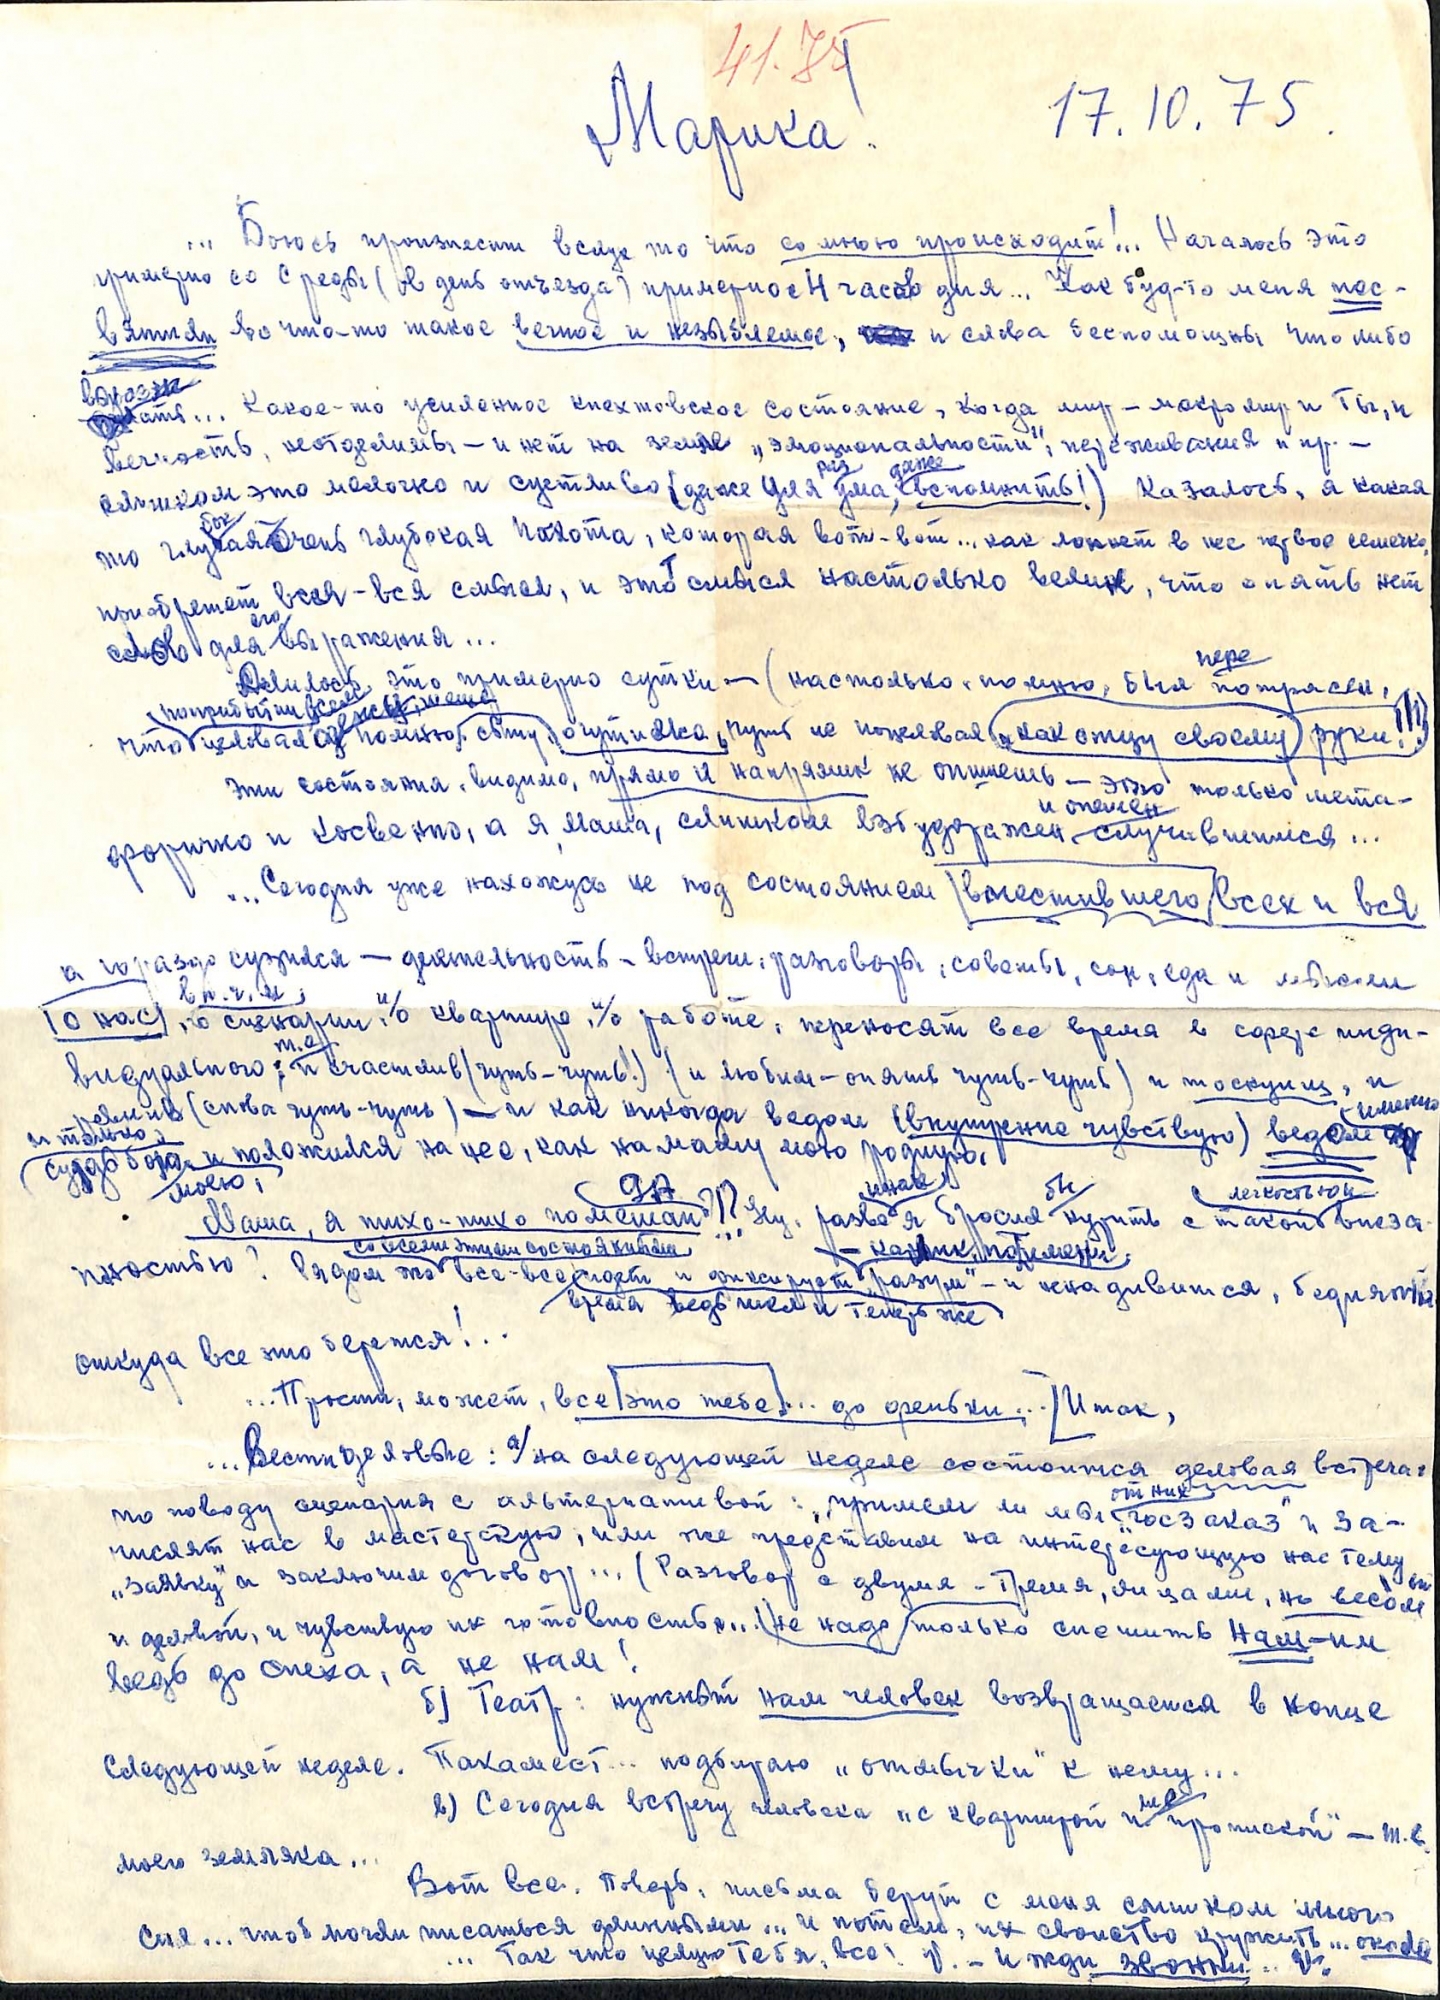 41.75
Марика!
17.10.75.
... Боюсь произнести вслух то что со мною происходит!... Началось это
примерно со среды (в день отъезда) примерно с 4 часов дня... Как буд-то меня пос-
вятили во что-то такое вечное и незыблемое, и слова беспомощны что либо
выражать... Какое-то усиленное кнехтовское состояние, когда мир - макромир и Ты, и
вечность, неотделимы - и нет на земле „эмоциональности“, переживания и пр. -
слишком это мелочно и суетливо (даже для ума, даже вспомнить!) Казалось, я какая
то очень глубокая пахота, которая вот-вот... как ляжет в нее первое семечко,
приобретет весь-вся смысл, и этот смысл настолько велик, что опять нет
слов для его выражения...
Длилось это примерно сутки - (настолько, помню, был потрясен,
что помню чуть не поцеловал как отцу своему руки!!!)
Эти состояния, видимо, прямо и напрямик не опишешь - это только мета-
форично и косвенно, а я, Маша, слишком взбудоражен и опешен случившимся...
...Сегодня уже нахожусь не под состоянием вместившего всех и вся
а гораздо сузился - деятельность - встречи, разговоры, советы, сон, еда и мысли
о нас, в п.ч. и о сценарии, и/о квартире, и/о работе, переносят все время в сферу инди-
видуального, т.е. и счастлив (чуть-чуть!) (и любим - опять чуть-чуть) и тоскующ, и
ревнив (снова чуть-чуть) - и как никогда ведом (внутренне чувствую) ведом именно
и только судьбой моею, и положился на нее, как на маму мою родную.
Маша, я тихо-тихо помешан да?!? Ну, разве я иначе бросил бы курить с такой легкостью и внеза-
пностью? Рядом
со всеми этими состояниями
время ведь шел и теперь же
идет и фиксирует „разум“ - и ненадивится, бедняжка
откуда все это берется!...
...Прости, может, все это тебе... до феньки... Итак,
...Вести деловые: а/ на следующей неделе состоится деловая встреча
по поводу сценария с альтернативой: „примем ли мы от них „госзаказ“ и за-
числят нас в мастерскую, или же представим на интересующую нас тему
„заявку“ и заключим договор... (Разговор с двумя - тремя, лицами, но весом
и деловой, и чувствую их готовность... (не надо только спешить нам - им
ведь до спеха, а не нам!
б) Театр: нужный нам человек возвращается в конце
следующей неделе. Пакамест... подбираю „отмычки“ к нему...
в) Сегодня встречу человека „с квартирой и пропиской“ - т.е.
моего земляка...
Вот все. Поверь, письма берут с меня слишком много
сил... чтоб могли писаться длинными... и потом, их свойство кружить... около
... Так что целую Тебя, все! - И жди звонки...